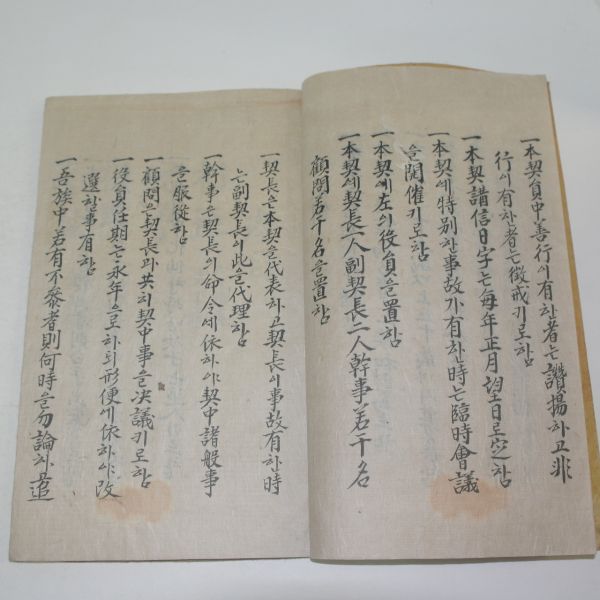 一 本契員中善行이有한者는讚揚하고非
行에有한者는徵戒키로함
一 本契講信日字는每年正月望日로定함
一 本契에特別한事故가有한時는臨時會議
을開催키로함
一 本契에左의役員을置함
一 本契에契長一人副契長二人幹事若干名
顧問若干名을置함
一 契長은本契을代表하고契長의事故有한時
는副契長이此을代理함
一 幹事은契長의命令에依하야契中諸般事
을服從함
一 顧問은契長과共치契中事을決議키로함
一 役員任期는永年으로하되形便에依하야改
選할事有함
一 吾族中若有不參者則何時을勿論하고追